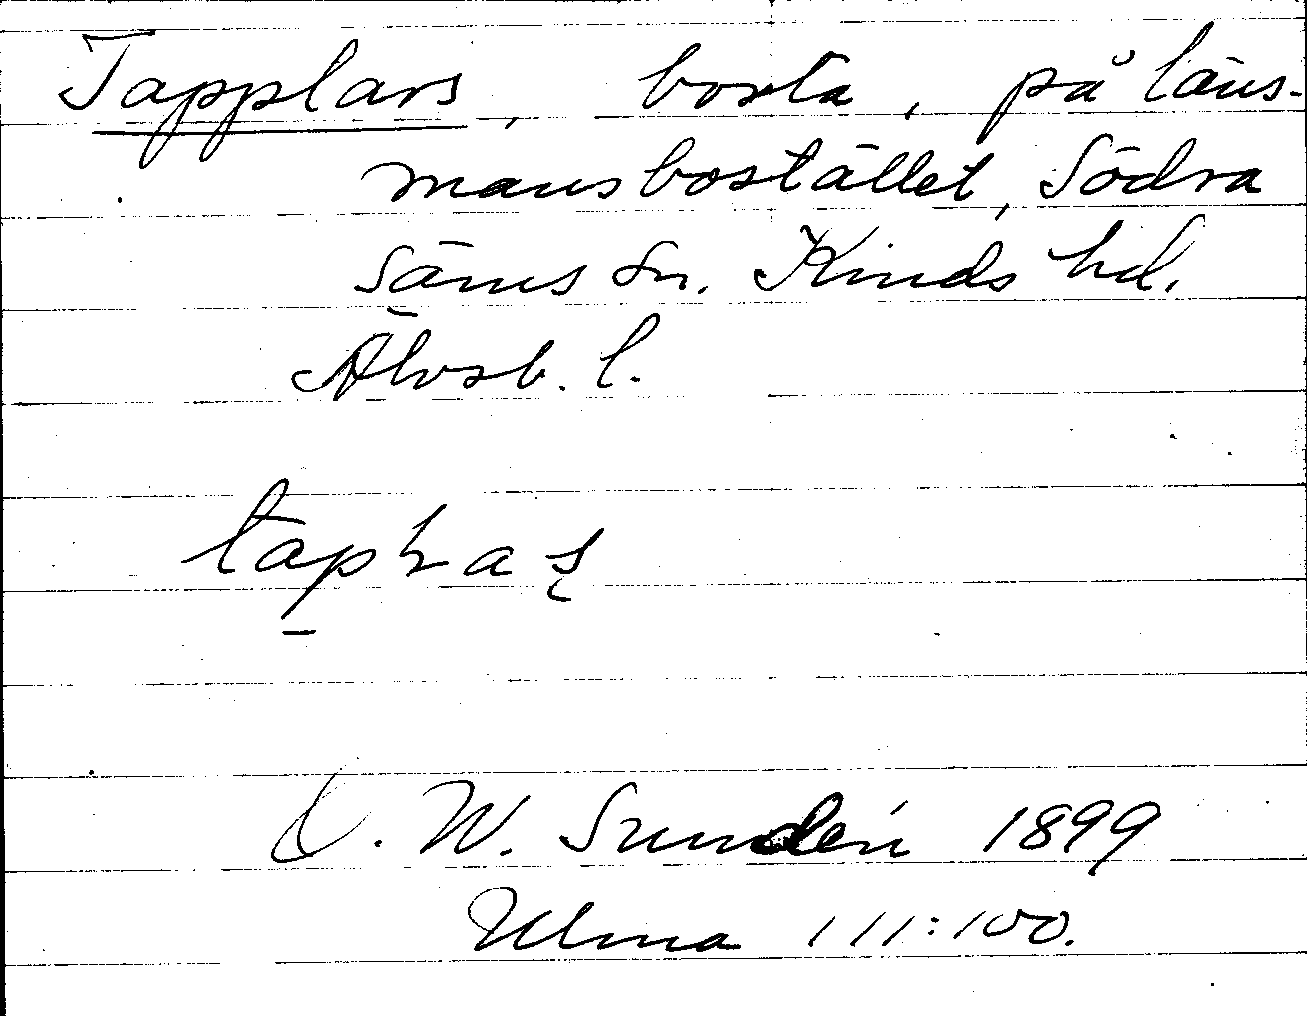 Tapplars, borta, på läns-
mansbostället, Södra
Säms sn. Kinds hd.
Älvsb. l.
D. W. Sundén 1899
Ulma 111:100.